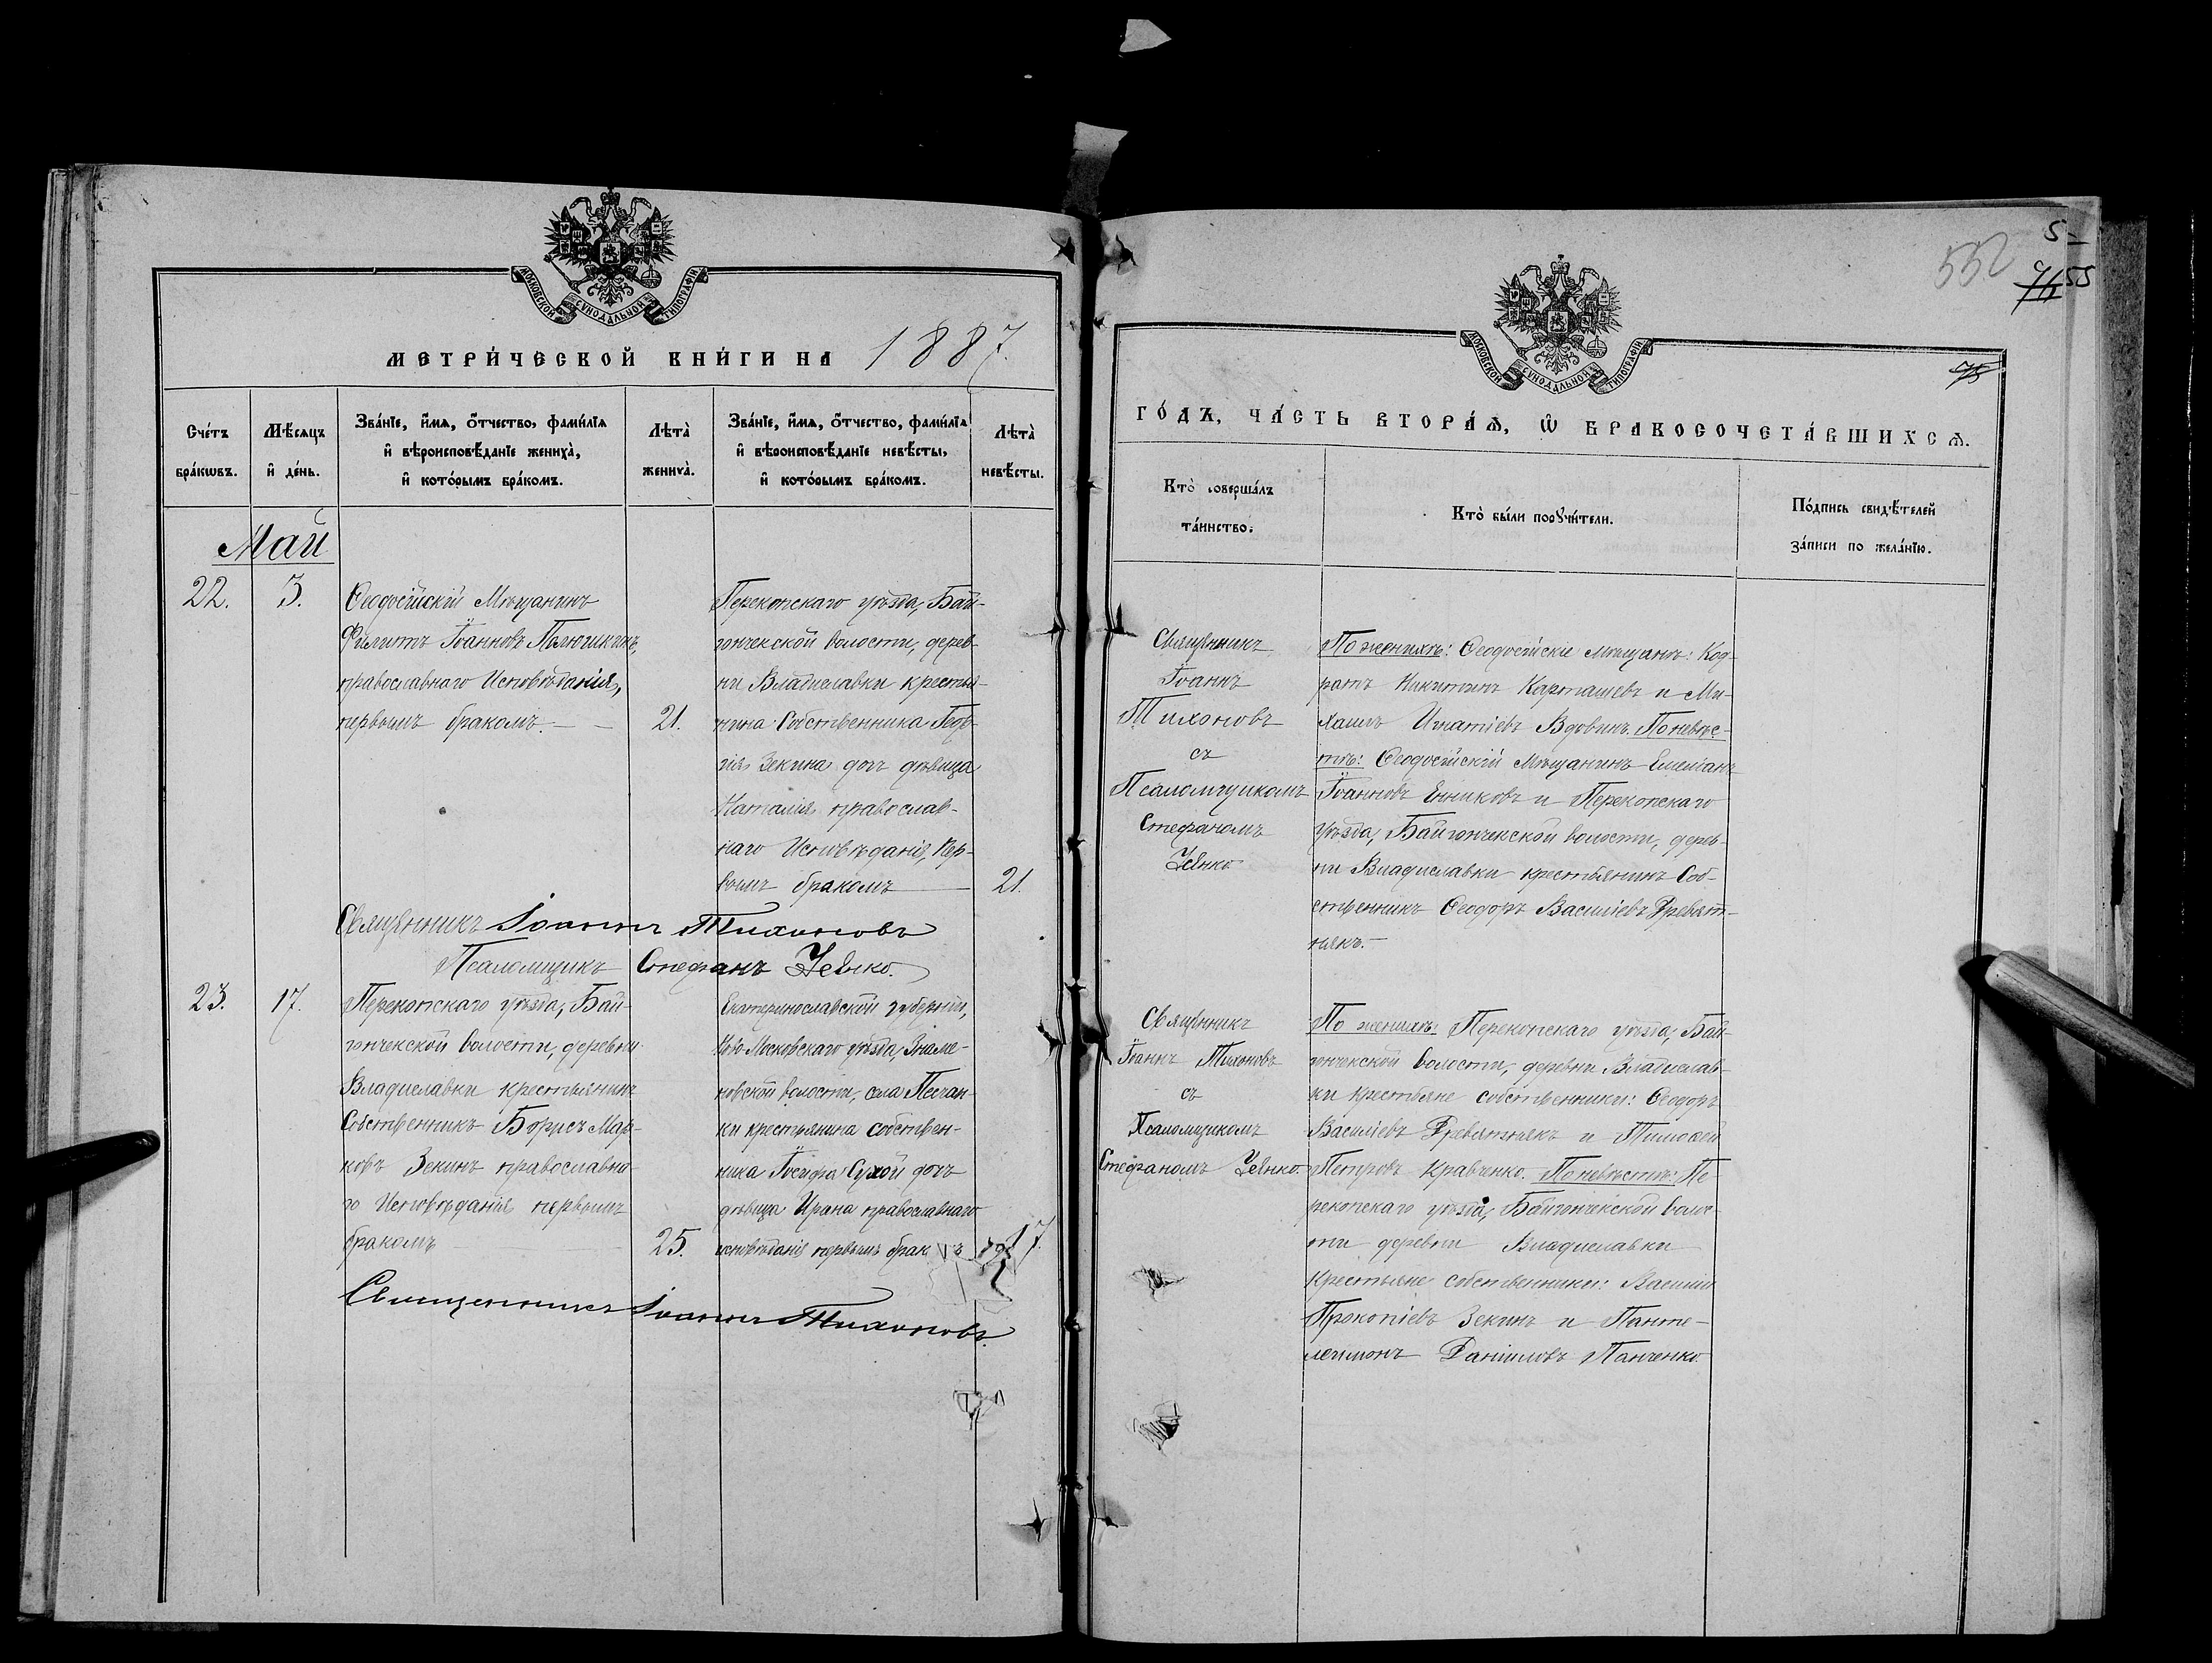 МОСКОВСКОЙ СѴНОДАЛЬНОЙ ТИПОГРАФІИ
МЕТРИ́ЧЕСКОЙ КНИ́ГИ НА 1887.
Сче́тъ бра́кѡвъ.
Мѣ́сяцъ и҆ де́нь.
Зва́нїе, и҆́мѧ, ѻ҆́тчество, фами́лїѧ
и҆ вѣроисповѣ́данїе жениха̀,
и҆ кото́рымъ бра́комъ.
Лѣта̀ жениха̀.
Зва́нїе, и҆́мѧ, ѻ҆́тчество, фами́лїѧ
и҆ вѣроисповѣ́данїе невѣ́сты,
и҆ кото́рымъ бра́комъ.
Лѣта̀ невѣ́сты.
Май
22.
3.
Ѳеодосійскій Мѣщанинъ
Филиппъ Іоанновъ
православнаго Исповѣданія,
первымъ бракомъ.
21.
Перекопскаго уѣзда, Бай-
гончекской волости, дерев-
ни Владиславки крестья-
нина Собственника Геор-
гія Зекина дочь дѣвица
Наталія православ-
наго Исповѣданія, Пер-
вымъ бракомъ
21.
Священникъ Іоаннъ Тихоновъ
Псаломщикъ Стефанъ
23.
17.
Перекопскаго уѣзда, Бай-
гончекской волости, деревни
Владиславки крестьянинъ
Собственникъ Борисъ Мар-
ковъ Зекинъ православна-
го Исповѣданія первымъ
бракомъ
25.
Екатеринославской губерніи,
Ново-Московскаго уѣзда, Знаме-
новской волости, села Песчан-
ки крестьянина собствен-
ника Іосифа Сухой дочь
дѣвица Ирина православнаго
исповѣданія первымъ брак
17.
Священникъ Іоаннъ Тихоновъ.
МОСКОВСКОЙ СѴНОДАЛЬНОЙ ТИПОГРАФІИ
552
55
75
ГО́ДЪ, ЧА́СТЬ ВТОРА́Ѧ, Ѡ҆ БРАКОСОЧЕТА́ВШИХСѦ.
Кто̀ соверша́лъ
та́инство.
Кто̀ бы́ли порꙋчи́тели.
По́дпись свидѣ́телей
за́писи по жела́нїю.
Священникъ
Іоаннъ
Тихоновъ
съ
Псаломщикомъ
Стефаномъ
По женихѣ: Ѳеодосійскіе мѣщане: Код-
ратъ Никитинъ Карташевъ и Ми-
хаилъ Игнатіевъ Вдовинъ. По невѣс-
тѣ: Ѳеодосійскій Мѣщанинъ Емеліанъ
Іоанновъ Енниковъ и Перекопскаго
уѣзда, Байгончекской волости, дерев-
ни Владиславки крестьянинъ Соб-
ственникъ Ѳеодоръ Василіевъ Древят-
някъ.
Священникъ
Іоаннъ Тихоновъ
съ
Псаломщикомъ
Стефаномъ
По женихѣ: Перекопскаго уѣзда, Бай-
гончекской волости, деревни Владислав-
ки крестьяне собственники: Ѳеодоръ
Василіевъ Древятнякъ и Тимоѳей
Петровъ Кравченко. По невѣстѣ: Пе-
рекопскаго уѣзда, Байгончекской волос-
ти деревни Владиславки
Крестьяне собственники: Василій
Прокопіевъ Зекинъ и Панте-
леимонъ Даніиловъ Панченко.